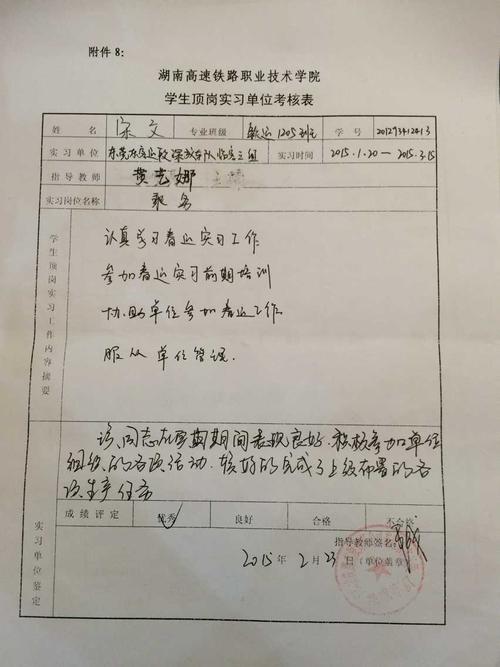 附件8:
湖南高速铁路职业技术学院
学生顶岗实习单位考核表
姓名 宋文 专业班级 1205班 学号
实习单位 实习时间 2015.1.20—2015.3.15
指导教师 黄艺娜
实习岗位名称 乘务
学生顶岗实习工作内容摘要
认真学习春运实习工作
参加春运实习前期培训
协助单位参加春运工作
服从单位管理.
该同志在实习期间表现良好.积极参加单位
组织的各项活动.较好的完成了上级布置的各
项生产任务
成绩评定 优秀 良好 合格 不合格
实习单位鉴定
指导教师签名:
2015年2月23日(单位盖章)